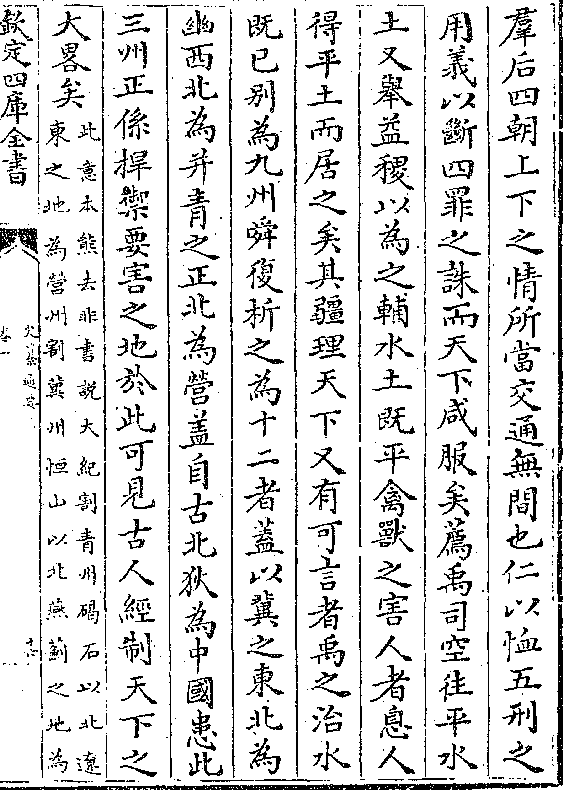 羣后四朝上下之情所當交通無間也仁以恤五刑之
用義以斷四罪之誅而天下咸服矣薦禹司空往平水
土又舉益稷以為之輔水土既平禽獸之害人者息人
得平土而居之矣其疆理天下又有可言者禹之治水
既已别為九州舜復析之為十二者蓋以冀之東北為
幽西北為并青之正北為營盖自古北狄為中國患此
三州正係捍禦要害之地於此可見古人經制天下之
大畧矣
此意本熊去非書説大紀割青州碣石以北遼
東之地為營州割冀州恒山以北燕薊之地為
欽定四庫全書
卷一